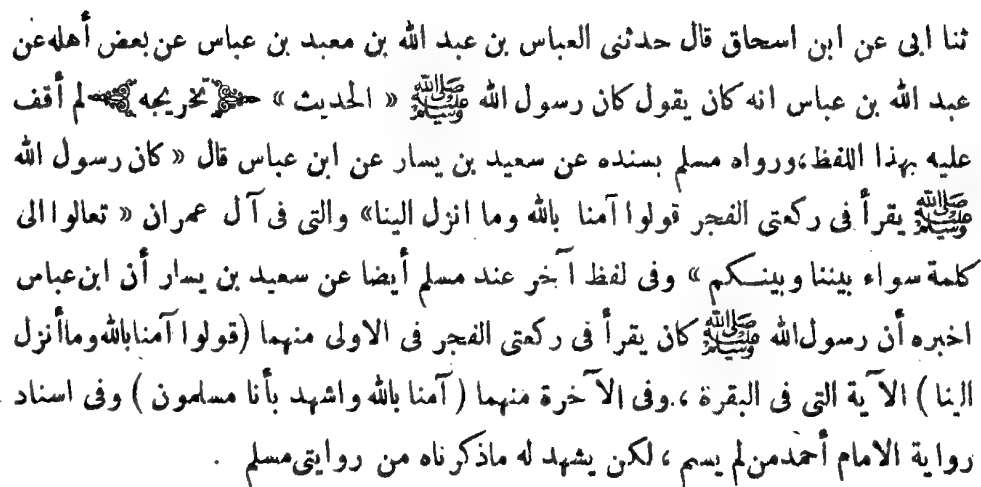 ثنا ابى عن ابن اسحاق قال حدثنى العباس بن عبد الله بن معبد بن عباس عن بعض أهله عن
عبد الله بن عباس انه كان يقول كان رسول الله ﷺ « الحديث » تخريجه لم أقف
عليه بهذا اللفظ، ورواه مسلم بسنده عن سعيد بن يسار عن ابن عباس قال « كان رسول الله
ﷺ يقرأ فى ركعتى الفجر قولوا آمنا بالله وما انزل الينا» والتى فى آل عمران « تعالوا الى
كلمة سواء بيننا وبينكم » وفى لفظ آخر عند مسلم أيضا عن سعيد بن يسار أن ابن عباس
اخبره أن رسول الله ﷺ كان يقرأ فى ركعتى الفجر فى الاولى منهما (قولوا آمنا بالله وما أنزل
الينا) الآية التى فى البقرة ، وفى الآخرة منهما (آمنا بالله واشهد بأنا مسلمون) وفى اسناد
رواية الامام أحمد من لم يسم ، لكن يشهد له ما ذكرناه من روايتى مسلم .